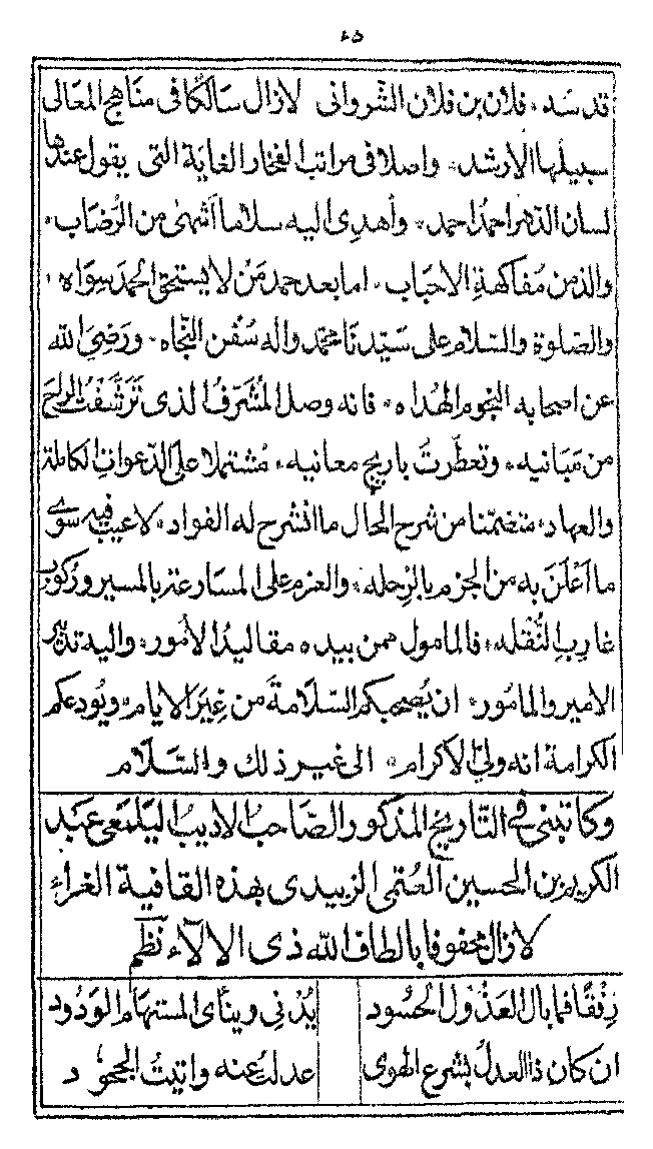 ٤٥
قد سَد، فلان بن فلان الشرواني لازال سَالكًا في مناهج المعَالى
سبيلها الارشد، واصلا في مراتب الفخار الغاية التي يقول عندها
لسان الدّهر احمدُ احمد، وأهدِى اليه سلاما اشهىٰ من الرُّضاب،
والذ من مُفاكهةِ الاحبَاب، اما بعد حمد مَنْ لا يستحق الحمدَ سِوَاه،
والصّلوة والسّلام على سَيّدنَا محمّد واله سُفن النجَاه، ورَضِيَ الله
عن اصحابه النجوم الهُداه، فانه وصل المُشَرّفُ الذى تَرَشَّفْتُ الراحَ
من مَبَانيه، وتعطّرتُ باريج معانيه، مُشتملا على الدّعوات الكاملة
والعهاد، متضمّنا من شرح الحال ما انشرح له الفواد، لاعيبَ فيه سوى
ما اَعْلَنَ به من الجزم بالرِحله، والعزم على المسَارعة بالمسير وركوب
غارِبِ النُّقله، فالمامول ممن بيده مقاليدُ الاُمور، واليه تدبير
الامير والمامُور، ان يُصحبكم السّلامةَ من غِيَر الايام، ويُودعكم
الكرامة انه وليّ الاكرام، الى غير ذلك والسَّلَام
وكاتبَنى فى التّاريخ المذكور الصّاحبُ الاديبُ اليَلمَعى عبَد
الكريم بن الحسين العُتمى الزبيدى بهذه القافية الغراء،
لازال محفوفا بالطاف الله ذى الالآء نظم
رِفْقًا فما بال العَذُول الحسُود يُدْنِي وينأى المستهام الودُود
ان كان ذا العدلُ بشرع الهوى عدلتُ عنه واتيتُ الجحود